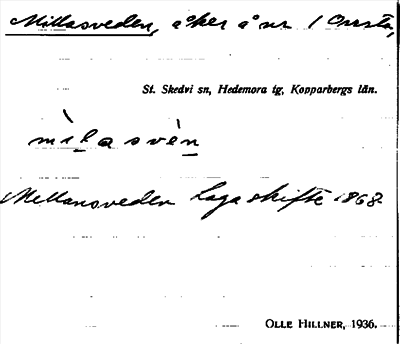 Millasveden, åker å nr 1 Orrsta,
St. Skedvi sn, Hedemora tg, Kopparbergs län.
mìlasvèn
Mellansveden Laga skifte 1868
OLLE HILLNER, 1936.